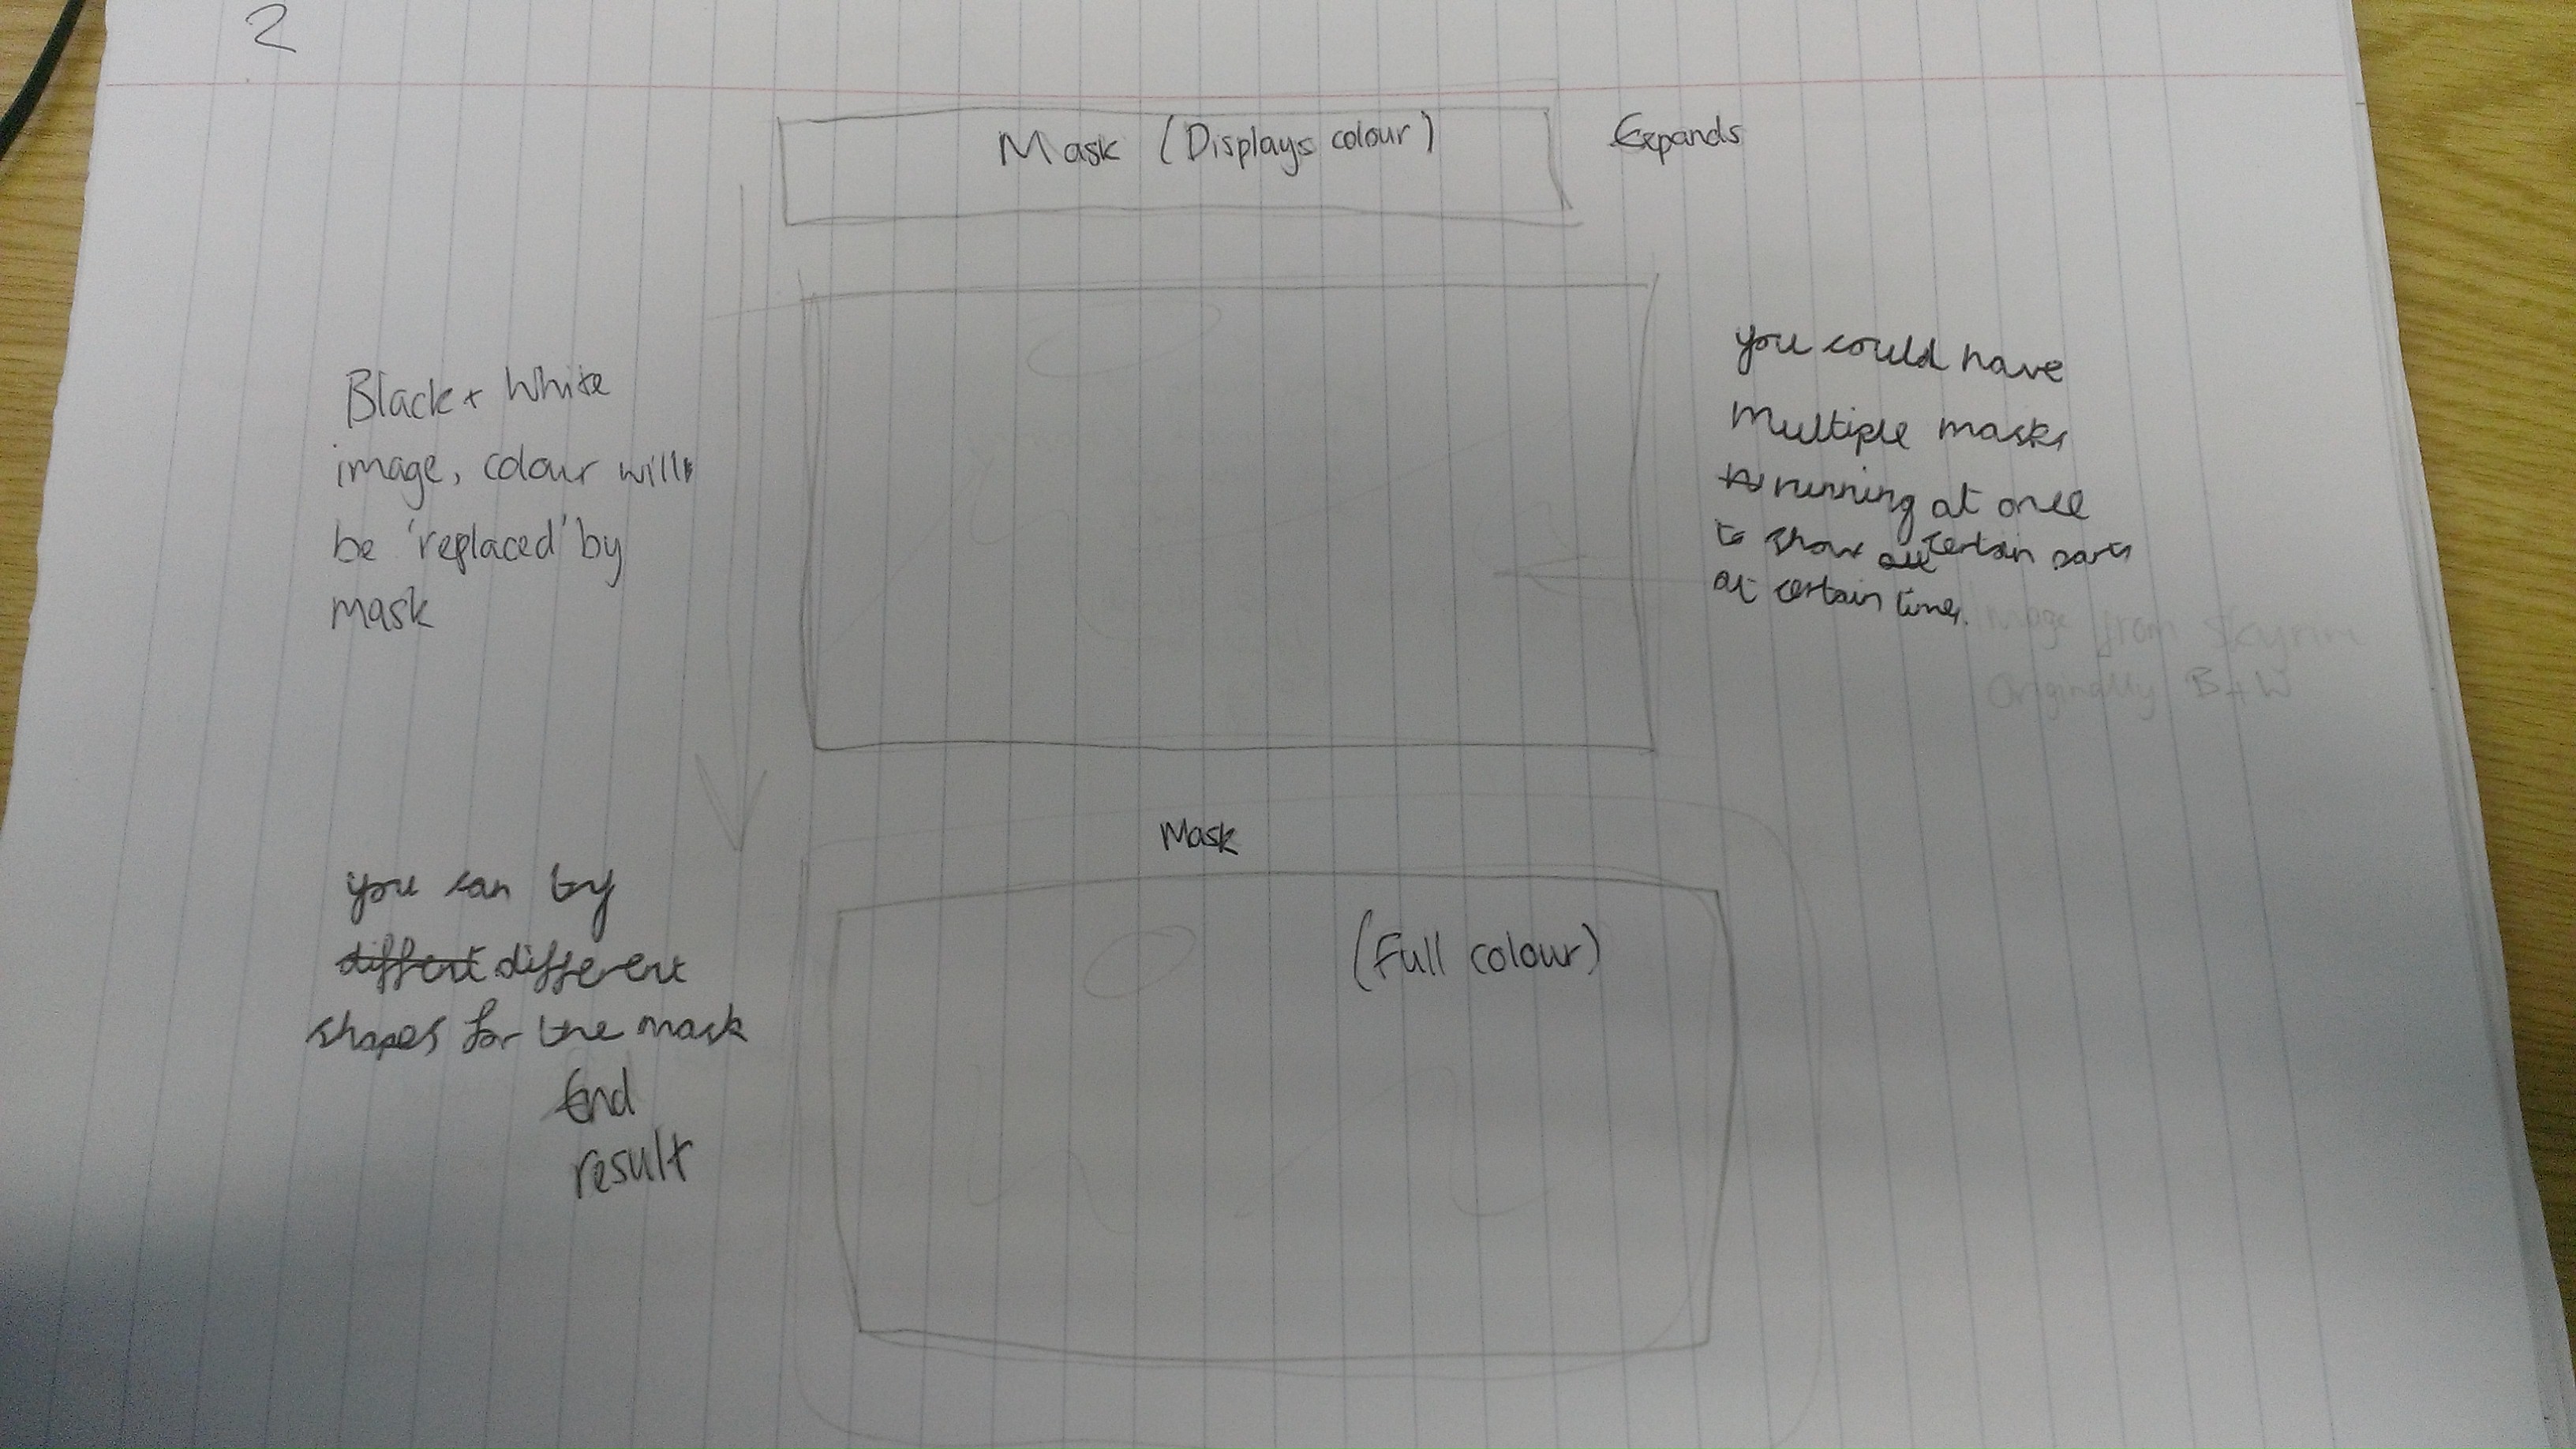 2
Mask (Displays colour)
Expands
Black + White
image, colour will
be 'replaced' by
mask
you could have
Multiple masks
running at once
to show certain parts
at certain times.
image from Skyrim
Originally B+W
Mask
(Full colour)
you can try
differt different
shapes for the mask
End
result